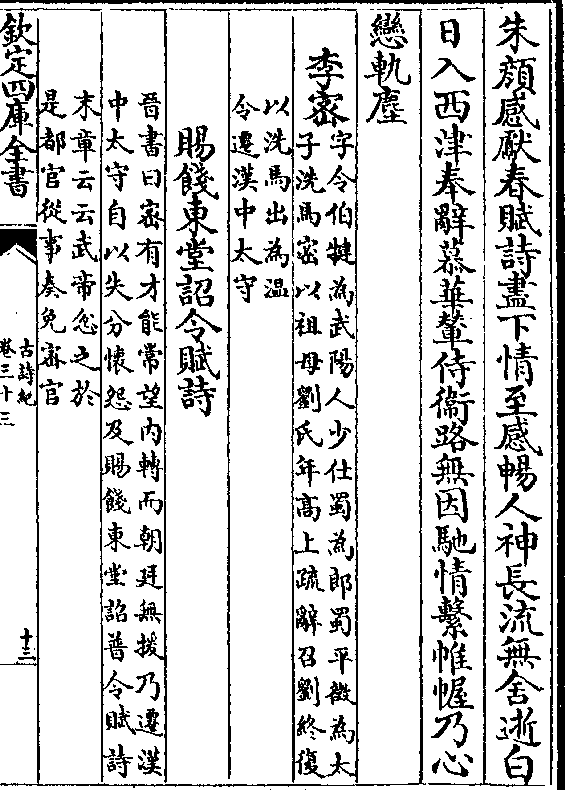 朱顔感獻春賦詩盡下情至感暢人神長流無舍逝白
日入西津奉辭慕華輦侍衛路無因馳情繫帷幄乃心
戀軌塵
李密
字令伯犍為武陽人少仕蜀為郎蜀平徵為太
子洗馬密以祖母劉氏年高上疏辭召劉終復
以洗馬出為温
令遷漢中太守
賜餞東堂詔令賦詩
晉書曰密有才能常望内轉而朝廷無援乃遷漢
中太守自以失分懷怨及賜餞東堂詔普令賦詩
末章云云武帝忿之於
是都官從事奏免密官
欽定四庫全書
古詩紀
卷三十三
十三